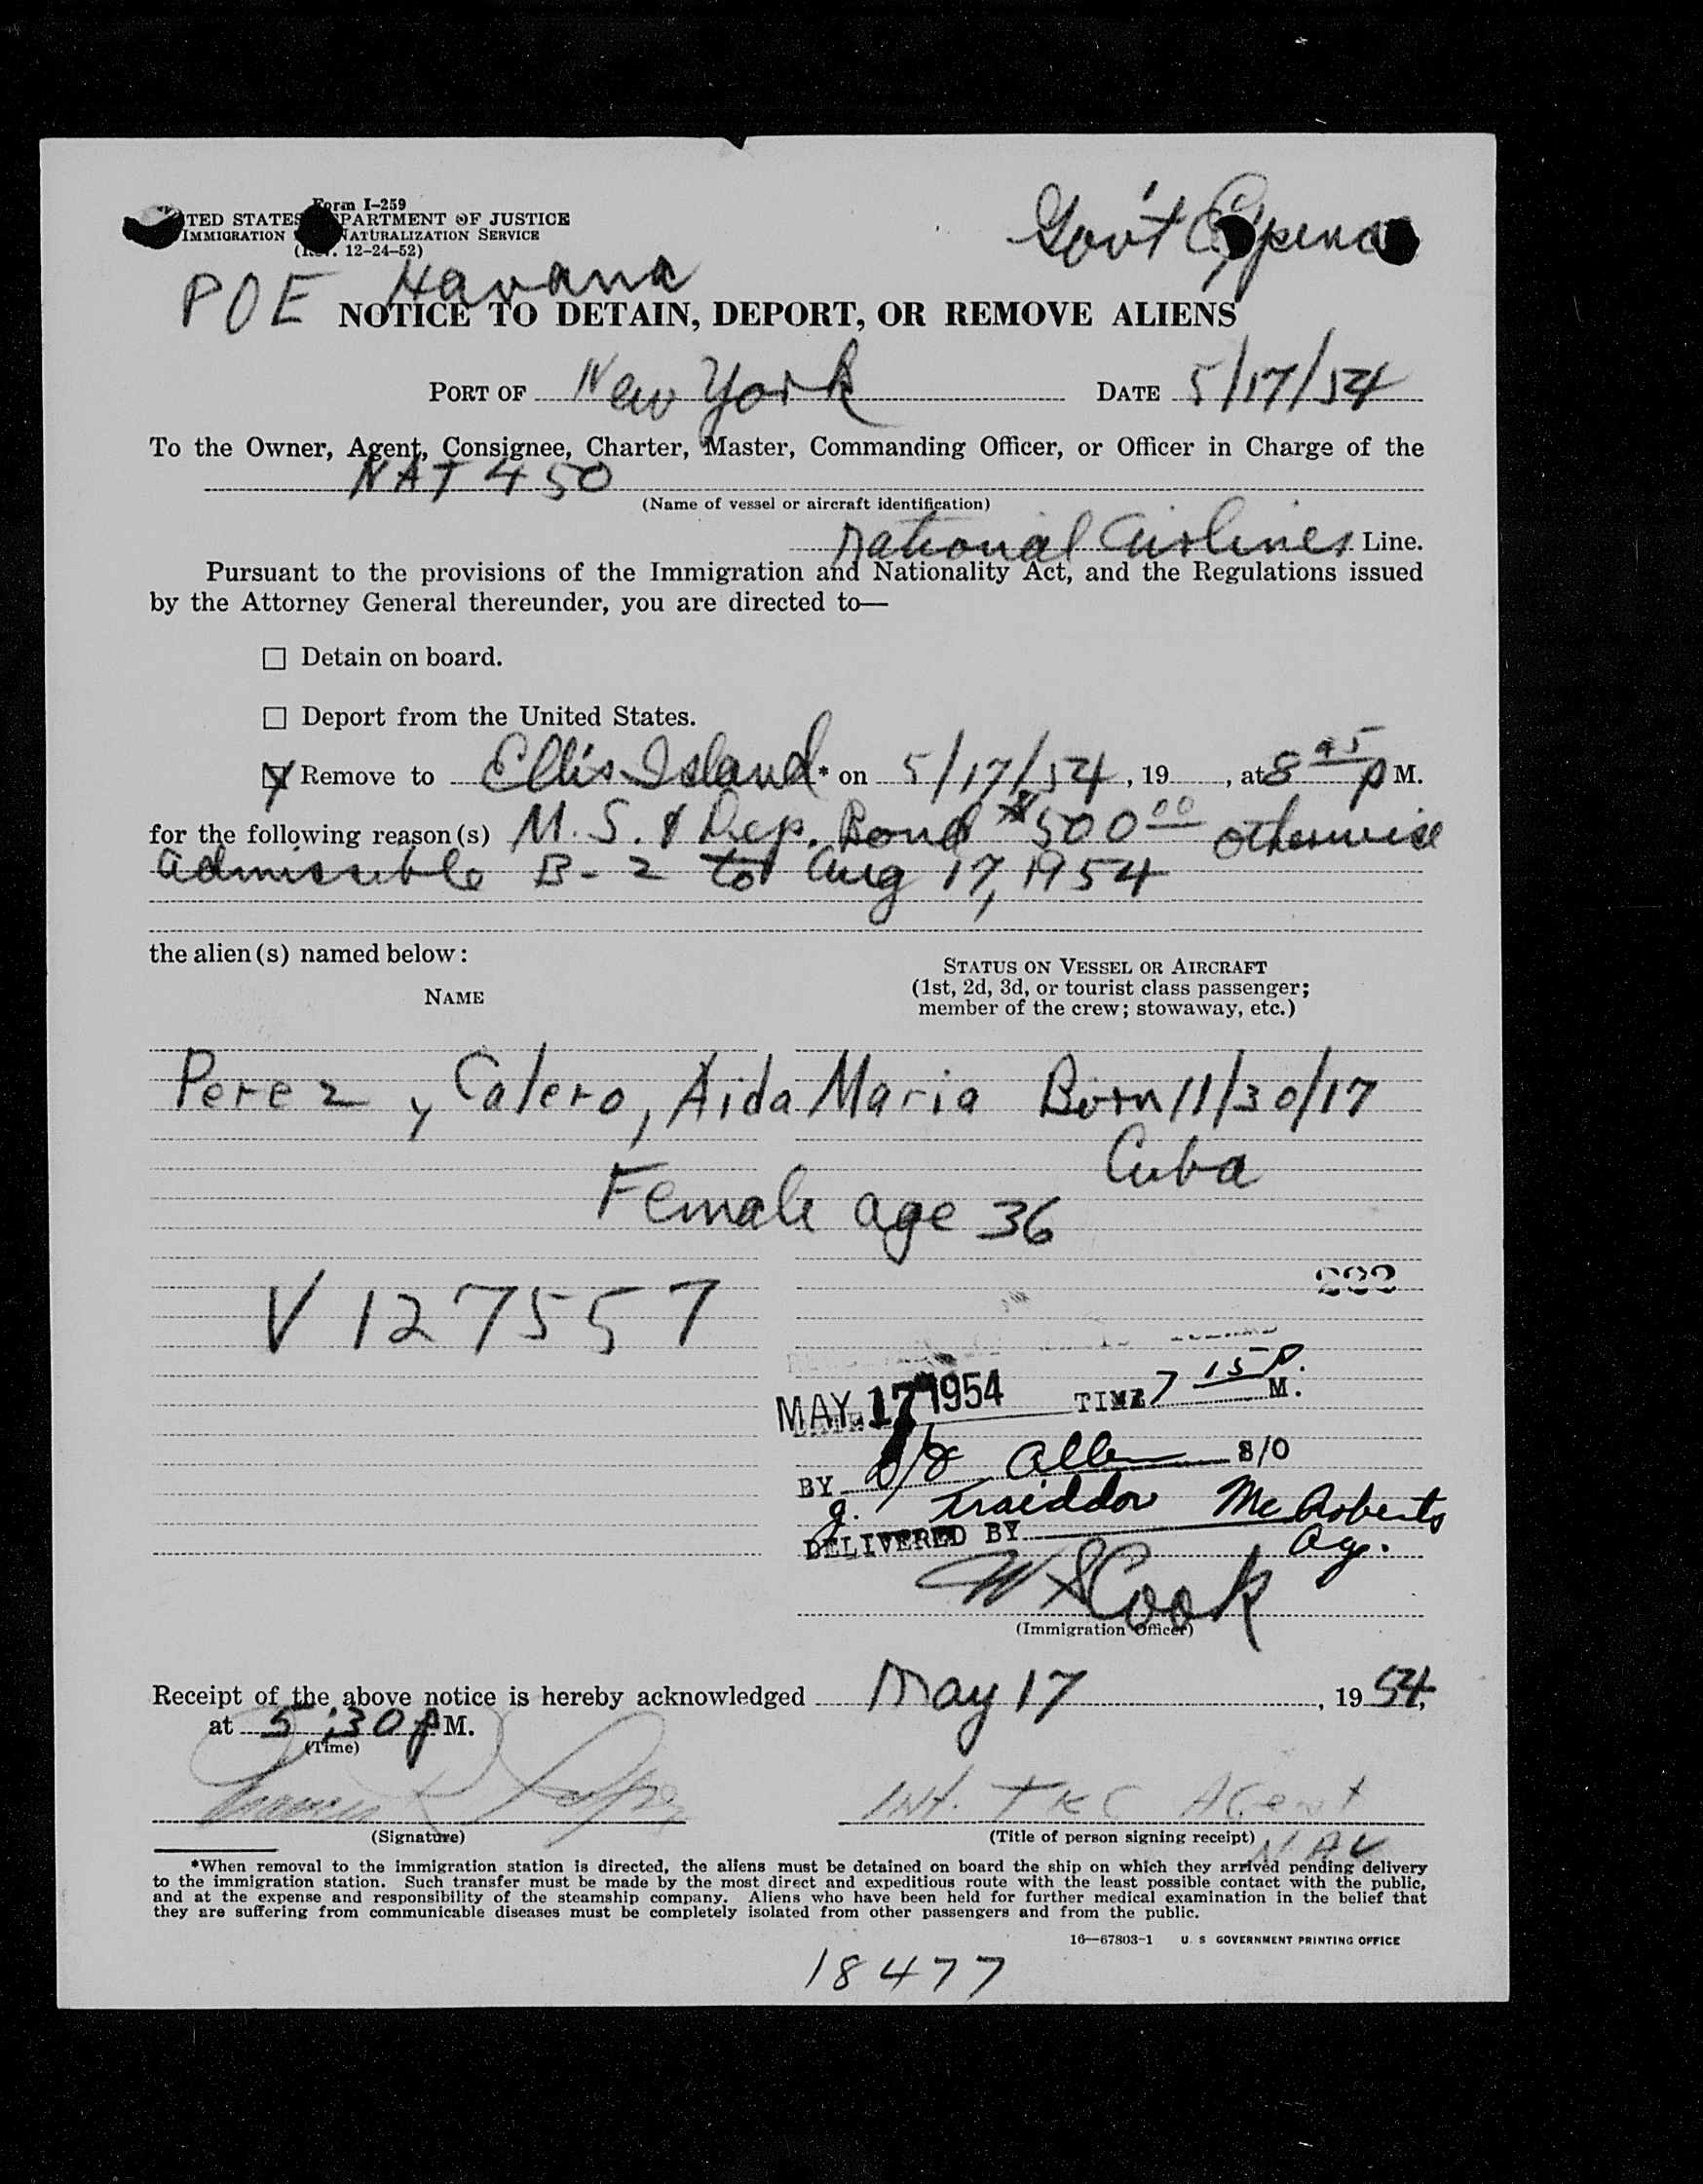 Form I-259
TED STATES PARTMENT OF JUSTICE
IMMIGRATION NATURALIZATION SERVICE
12-24-52)
Gov't Expense
POE Havana
NOTICE TO DETAIN, DEPORT, OR REMOVE ALIENS
PORT OF New York DATE 5/17/54
To the Owner, Agent, Consignee, Charter, Master, Commanding Officer, or Officer in Charge of the
NAT 450
(Name of vessel or aircraft identification)
National Airlines Line.
Pursuant to the provisions of the Immigration and Nationality Act, and the Regulations issued
by the Attorney General thereunder, you are directed to—
☐ Detain on board.
☐ Deport from the United States.
☒ Remove to Ellis Island* on 5/17/54, 19 , at 8 45 P M.
for the following reason(s) M. S. & Dep. Bond $500 00 otherwise
admissible B-2 to Aug 17, 1954
the alien(s) named below:
NAME
STATUS ON VESSEL OR AIRCRAFT
(1st, 2d, 3d, or tourist class passenger;
member of the crew; stowaway, etc.)
Perez y Calero, Aida Maria Born 11/30/17
Cuba
Female age 36
V 127557
MAY 17 1954 TIME 7 15 P. M.
BY Allen S/O
J. McRoberts
DELIVERED BY Ag.
W S Cook
(Immigration Officer)
Receipt of the above notice is hereby acknowledged May 17, 1954,
at 5:30 P M.
(Time)
Lopez
Int. Tkt Agent
(Signature)
(Title of person signing receipt)
NAL
*When removal to the immigration station is directed, the aliens must be detained on board the ship on which they arrived pending delivery
to the immigration station. Such transfer must be made by the most direct and expeditious route with the least possible contact with the public,
and at the expense and responsibility of the steamship company. Aliens who have been held for further medical examination in the belief that
they are suffering from communicable diseases must be completely isolated from other passengers and from the public.
16—67803-1 U. S. GOVERNMENT PRINTING OFFICE
18477